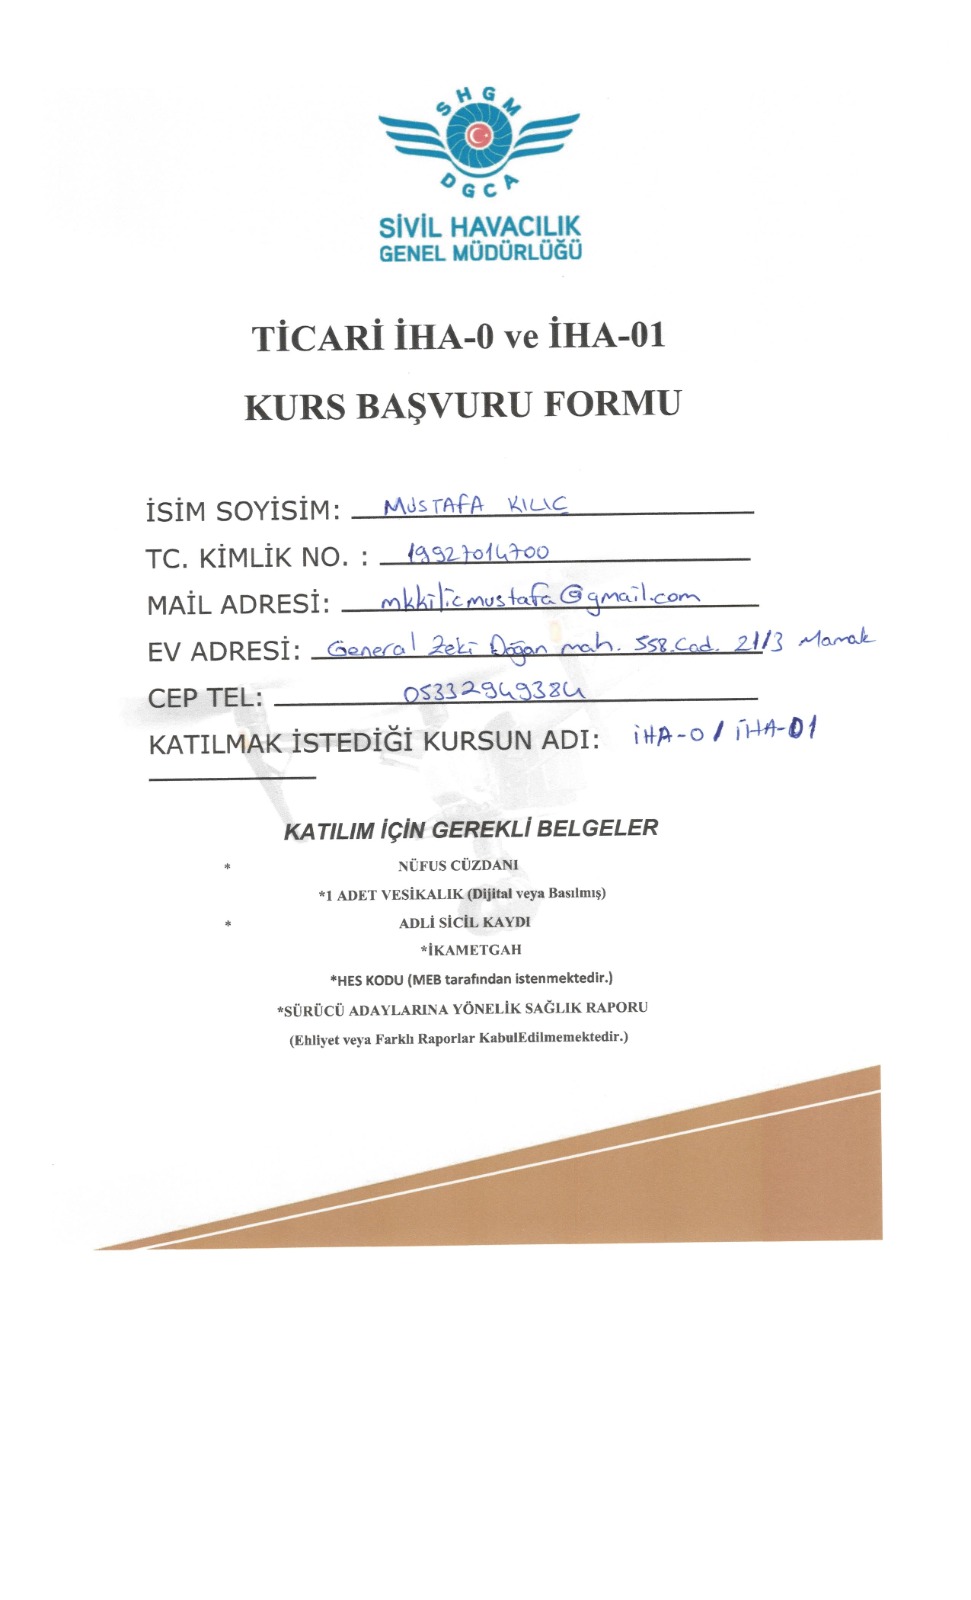 SHGM
DGCA
SİVİL HAVACILIK
GENEL MÜDÜRLÜĞÜ
TİCARİ İHA-0 ve İHA-01
KURS BAŞVURU FORMU
İSİM SOYİSİM: MUSTAFA KILIÇ
TC. KİMLİK NO. : 19927014700
MAİL ADRESİ: mkkilicmustafa@gmail.com
EV ADRESİ: General Zeki Doğan mah. 558.Cad. 21/3 Mamak
CEP TEL: 05332949384
KATILMAK İSTEDİĞİ KURSUN ADI: İHA-0 / İHA-01
KATILIM İÇİN GEREKLİ BELGELER
* NÜFUS CÜZDANI
*1 ADET VESİKALIK (Dijital veya Basılmış)
* ADLİ SİCİL KAYDI
*İKAMETGAH
*HES KODU (MEB tarafından istenmektedir.)
*SÜRÜCÜ ADAYLARINA YÖNELİK SAĞLIK RAPORU
(Ehliyet veya Farklı Raporlar KabulEdilmemektedir.)